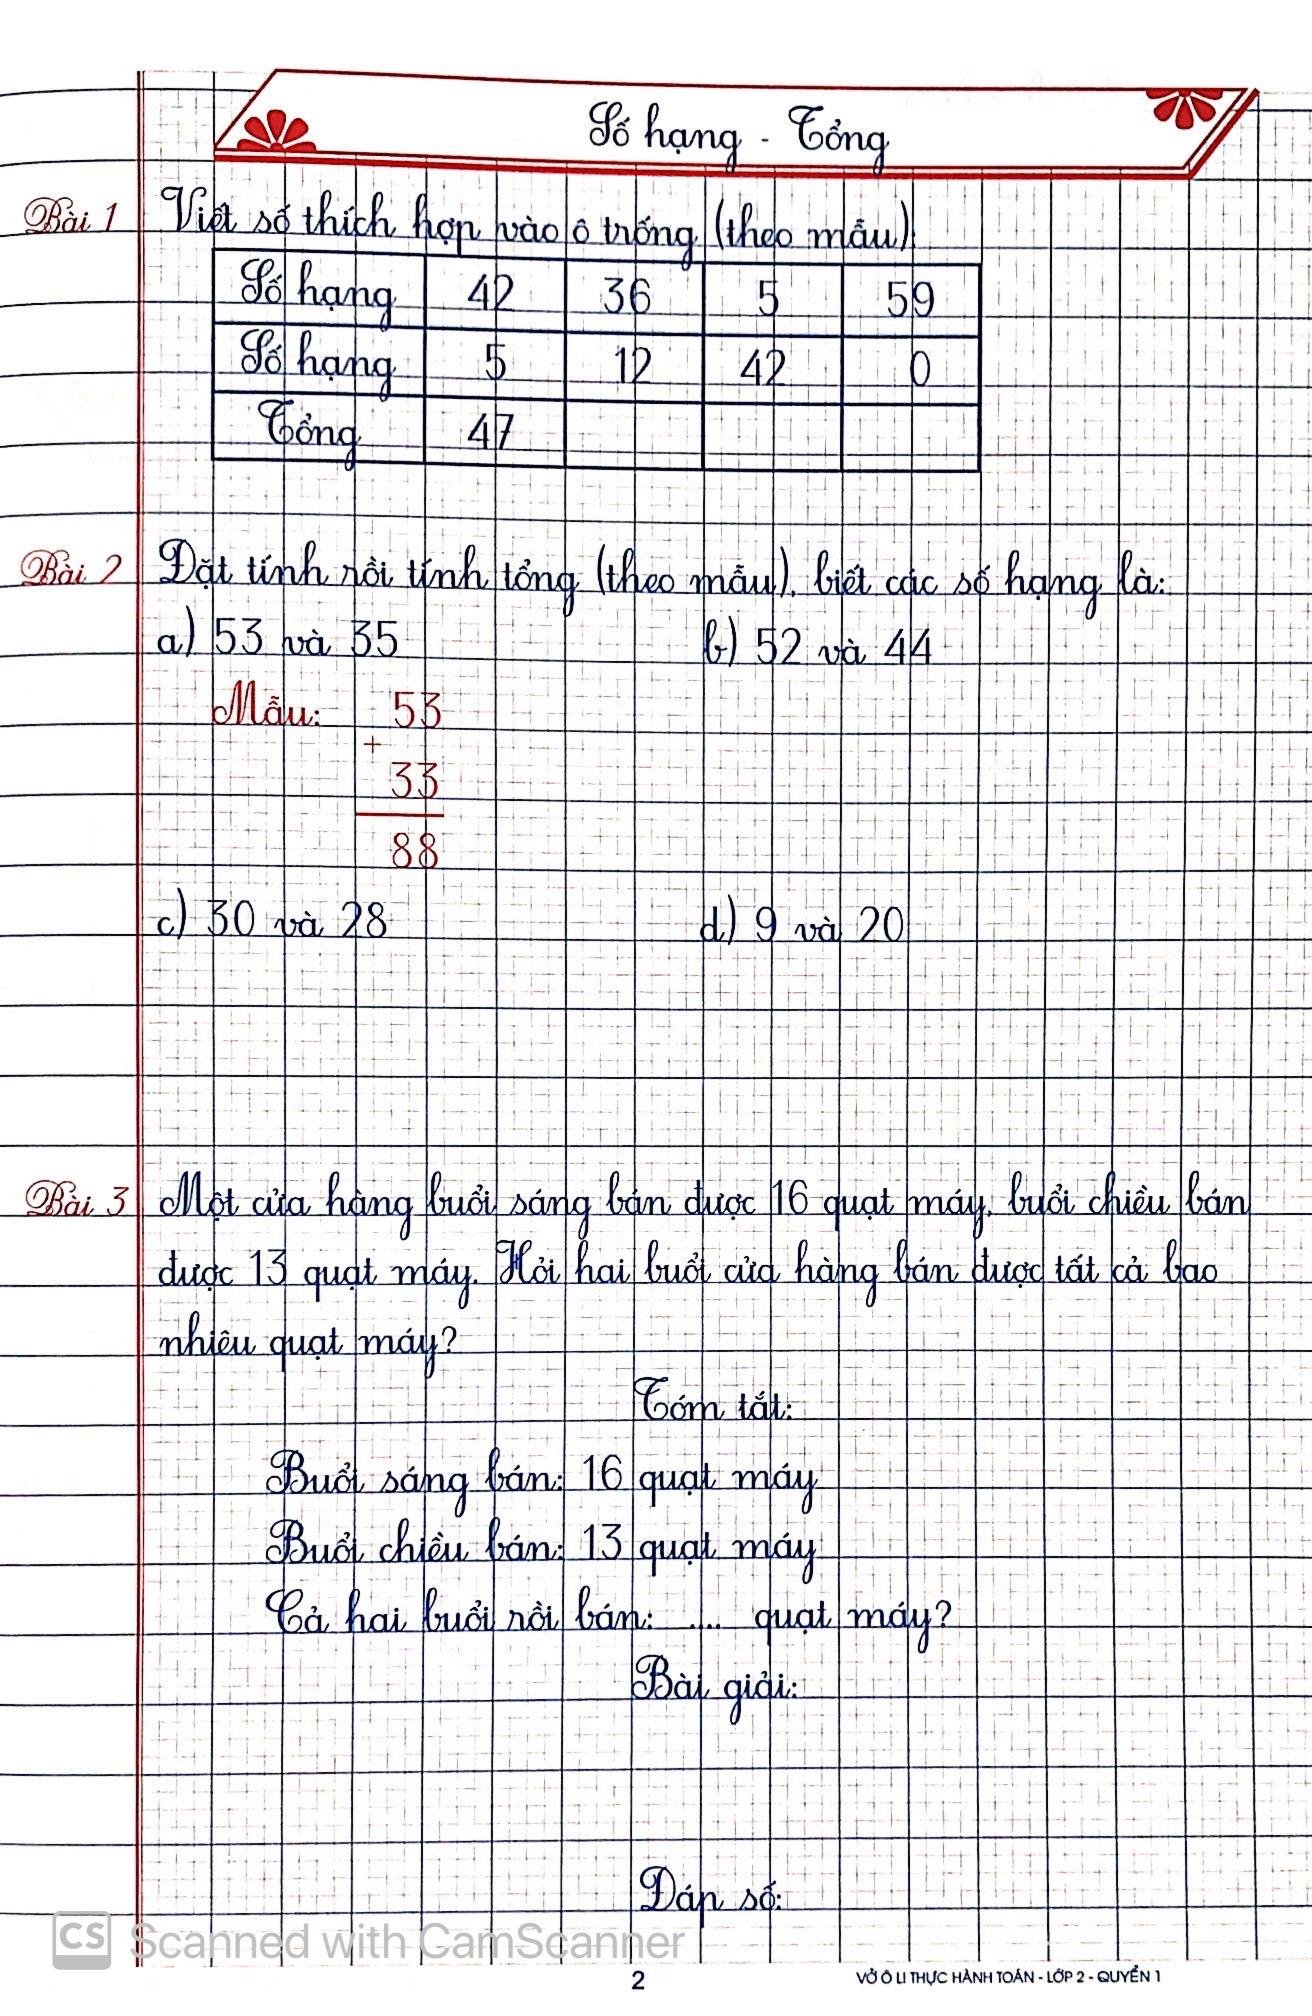 Số hạng - Tổng
Bài 1 Viết số thích hợp vào ô trống (theo mẫu)
Số hạng 42 36 5 59
Số hạng 5 12 42 0
Tổng 47
Bài 2 Đặt tính rồi tính tổng (theo mẫu), biết các số hạng là:
a) 53 và 35 b) 52 và 44
Mẫu: 53
+
33
88
c) 30 và 28 d) 9 và 20
Bài 3 Một cửa hàng buổi sáng bán được 16 quạt máy, buổi chiều bán
được 13 quạt máy. Hỏi hai buổi cửa hàng bán được tất cả bao
nhiêu quạt máy?
Tóm tắt:
Buổi sáng bán: 16 quạt máy
Buổi chiều bán: 13 quạt máy
Cả hai buổi rồi bán: .... quạt máy?
Bài giải:
Đáp số:
CS Scanned with CamScanner
2 VỞ Ô LI THỰC HÀNH TOÁN - LỚP 2 - QUYỂN 1